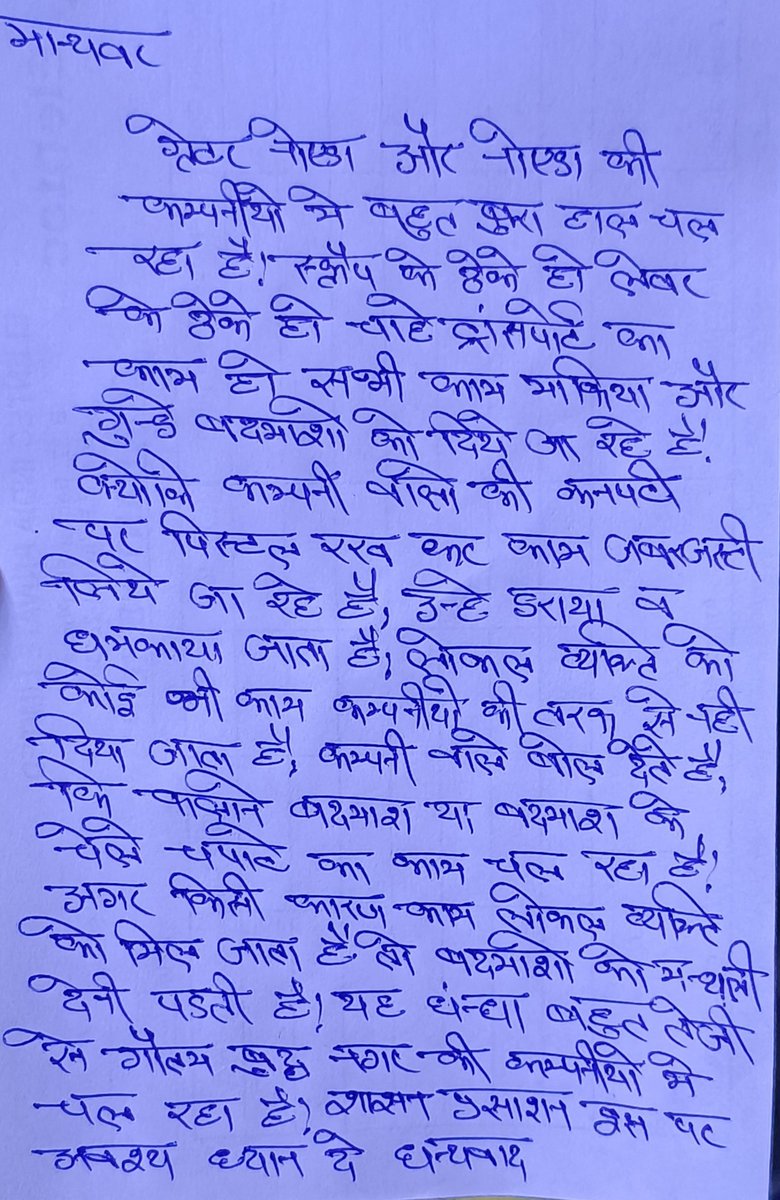 मान्यवर
ग्रेटर नोएडा और नोएडा की
कम्पनीयो मे बहुत बुरा हाल चल
रहा है। स्क्रैप के ठेके हो लेबर
के ठेके हो चाहे ट्रांसपोर्ट का
काम हो सभी काम माफिया और
गुन्डे बदमाशो को दिये जा रहे है।
क्योकि कम्पनी वालो की कनपटी
पर पिस्टल रख कर काम जबरजस्ती
लिये जा रहे है, उन्हे डराया व
धमकाया जाता है, लोकल व्यक्ति को
कोई भी काम कम्पनीयो की तरफ से नही
दिया जाता है, कम्पनी वाले बोल देते है,
कि फलाने बदमाश या बदमाश के
चेले चपाटे का काम चल रहा है।
अगर किसी कारण काम लोकल व्यक्ति
को मिल जाता है तो बदमाशो को मन्थली
देनी पडती है। यह धंन्धा बहुत तेजी
से गौतम बुद्ध नगर की कम्पनीयो मे
चल रहा है। शासन प्रसाशन इस पर
अवश्य ध्यान दे धन्यवाद